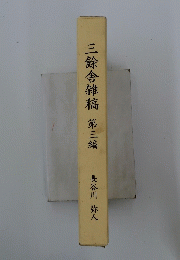 三餘舎雑稿 第三編
長谷川 弥人